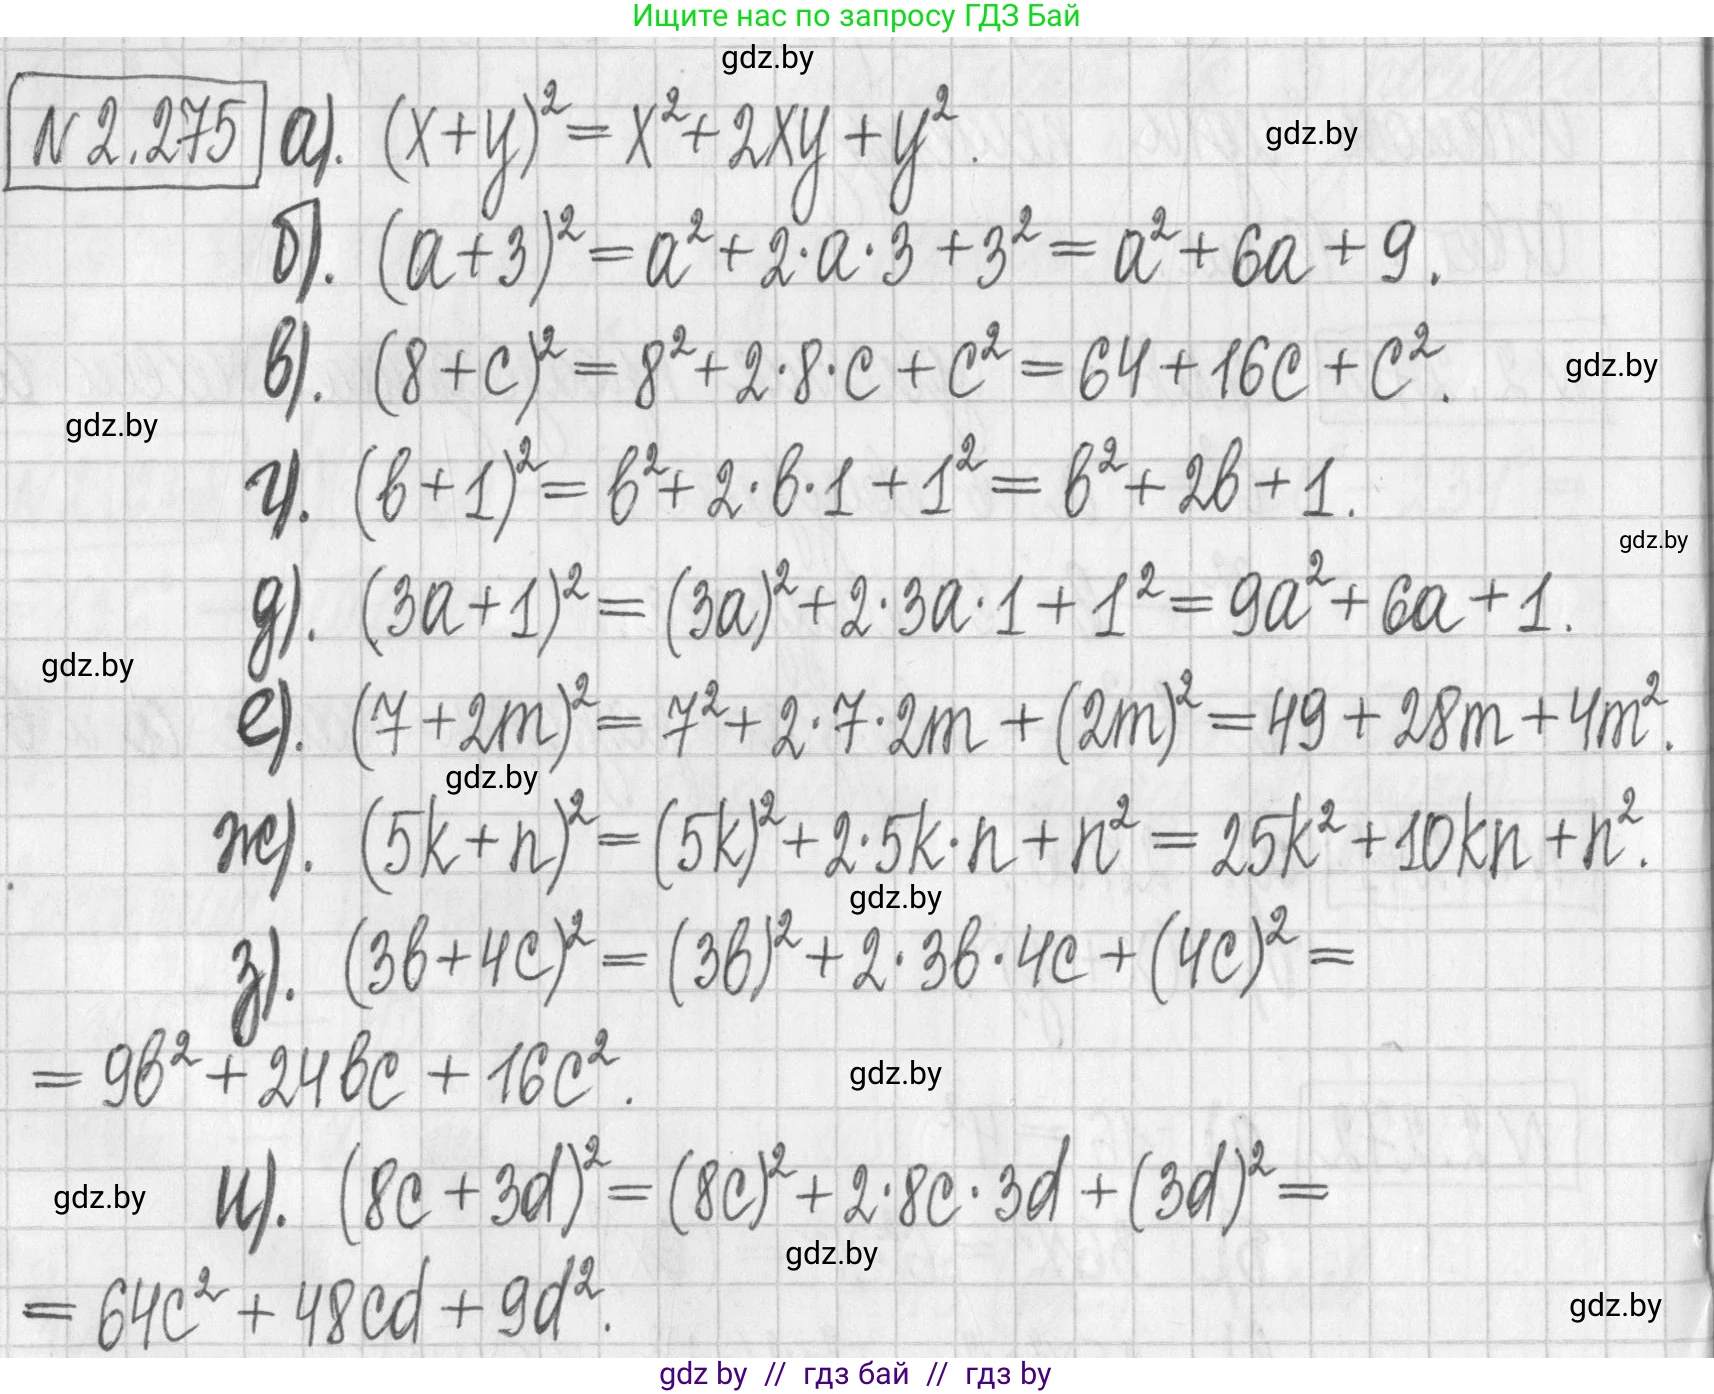 Ищите нас по запросу ГДЗ Бай
gdz.by
N 2.275 а). (x+y)² = x² + 2xy + y².
gdz.by
б). (a+3)² = a² + 2·a·3 + 3² = a² + 6a + 9.
в). (8+c)² = 8² + 2·8·c + c² = 64 + 16c + c².
gdz.by
gdz.by
г). (b+1)² = b² + 2·b·1 + 1² = b² + 2b + 1.
gdz.by
д). (3a+1)² = (3a)² + 2·3a·1 + 1² = 9a² + 6a + 1.
gdz.by
е). (7+2m)² = 7² + 2·7·2m + (2m)² = 49 + 28m + 4m².
gdz.by
ж). (5k+n)² = (5k)² + 2·5k·n + n² = 25k² + 10kn + n².
gdz.by
з). (3b+4c)² = (3b)² + 2·3b·4c + (4c)² =
= 9b² + 24bc + 16c².
gdz.by
gdz.by
и). (8c+3d)² = (8c)² + 2·8c·3d + (3d)² =
gdz.by
= 64c² + 48cd + 9d².
gdz.by
gdz by // гдз бай // гдз by